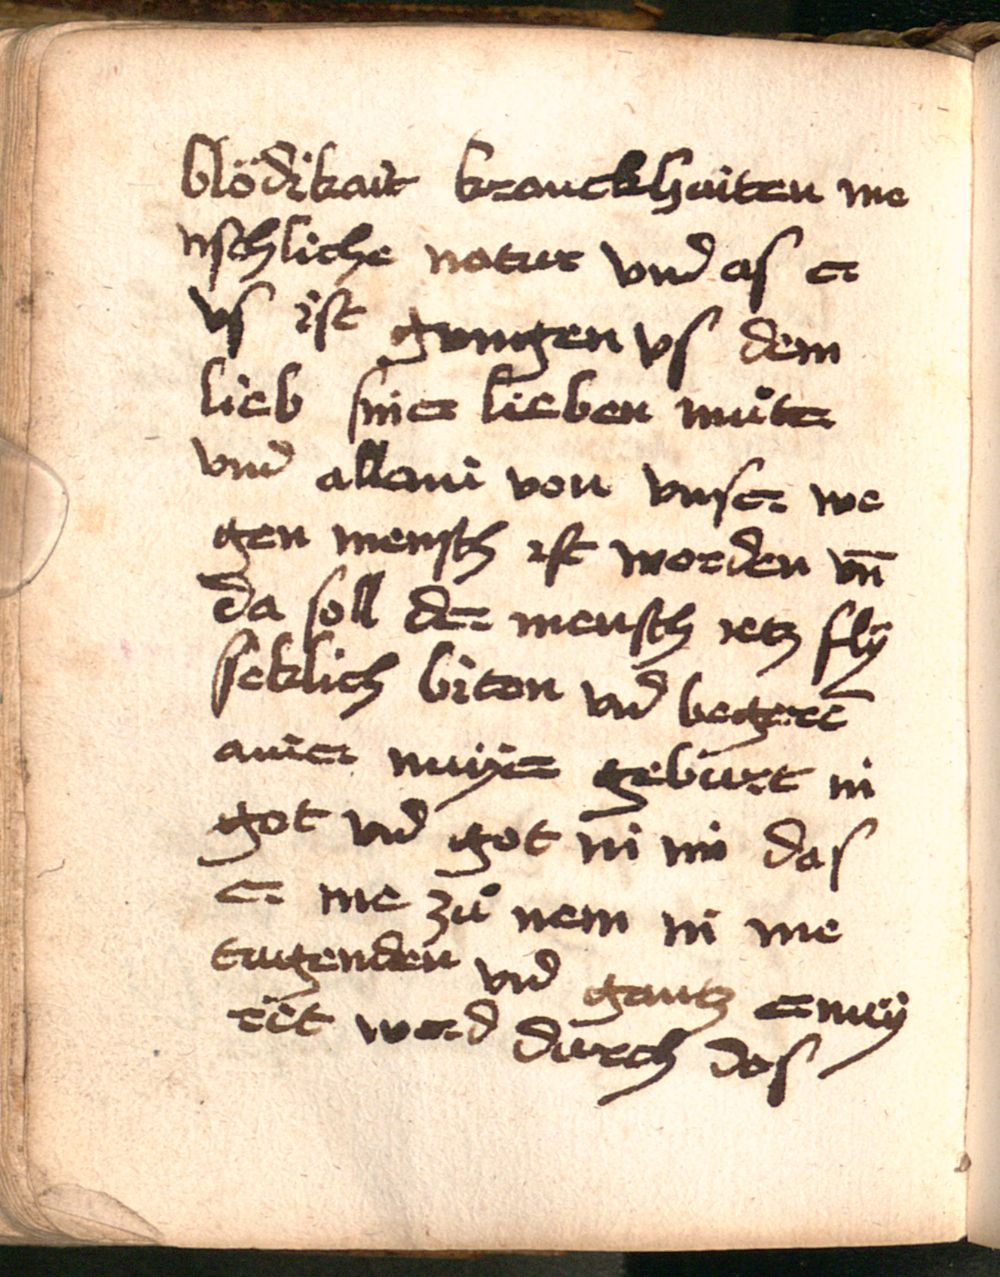 blödikait kranckhaiten me
nschliche natur vnd as er
vs ist gangen vs dem
lieb siner lieben muͦter
vnd allain von vnser we
gen mensch ist worden vn̄
da soll der mensch ietz fly
seklich biten vnd begerē
ainer nüyer geburt in
got vnd got in im das
er me zuͦ nem in me
tugenden vnd gantz ernüy
rit werd durch das